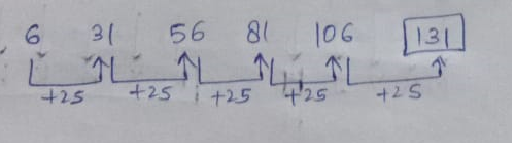 6 31 56 81 106 131
+25 +25 +25 +25 +25